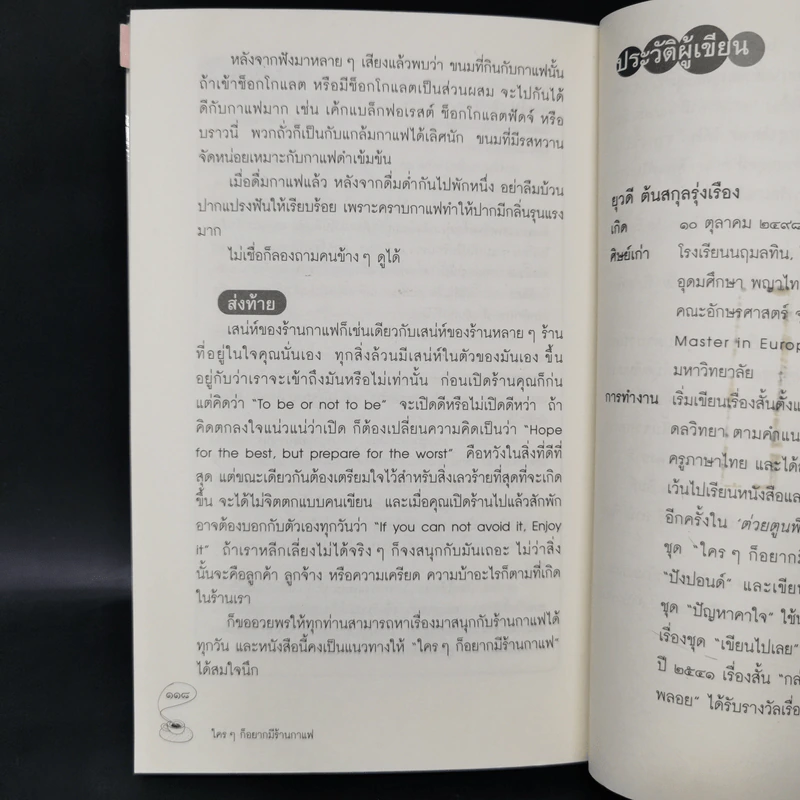 หลังจากฟังมาหลาย ๆ เสียงแล้วพบว่า ขนมที่กินกับกาแฟนั้น
ถ้าเข้าช็อกโกแลต หรือมีช็อกโกแลตเป็นส่วนผสม จะไปกันได้
ดีกับกาแฟมาก เช่น เค้กแบล็กฟอเรสต์ ช็อกโกแลตฟัดจ์ หรือ
บราวนี่ พวกถั่วก็เป็นกับแกล้มกาแฟได้เลิศนัก ขนมที่มีรสหวาน
จัดหน่อยเหมาะกับกาแฟดำเข้มข้น
เมื่อดื่มกาแฟแล้ว หลังจากดื่มด่ำกันไปพักหนึ่ง อย่าลืมบ้วน
ปากแปรงฟันให้เรียบร้อย เพราะคราบกาแฟทำให้ปากมีกลิ่นรุนแรง
มาก
ไม่เชื่อก็ลองถามคนข้าง ๆ ดูได้
ส่งท้าย
เสน่ห์ของร้านกาแฟก็เช่นเดียวกับเสน่ห์ของร้านหลาย ๆ ร้าน
ที่อยู่ในใจคุณนั่นเอง ทุกสิ่งล้วนมีเสน่ห์ในตัวของมันเอง ขึ้น
อยู่กับว่าเราจะเข้าถึงมันหรือไม่เท่านั้น ก่อนเปิดร้านคุณก็ก่น
แต่คิดว่า "To be or not to be" จะเปิดดีหรือไม่เปิดดีหว่า ถ้า
คิดตกลงใจแน่วแน่ว่าเปิด ก็ต้องเปลี่ยนความคิดเป็นว่า "Hope
for the best, but prepare for the worst" คือหวังในสิ่งที่ดีที่
สุด แต่ขณะเดียวกันต้องเตรียมใจไว้สำหรับสิ่งเลวร้ายที่สุดที่จะเกิด
ขึ้น จะได้ไม่จิตตกแบบคนเขียน และเมื่อคุณเปิดร้านไปแล้วสักพัก
อาจต้องบอกกับตัวเองทุกวันว่า "If you can not avoid it, Enjoy
it" ถ้าเราหลีกเลี่ยงไม่ได้จริง ๆ ก็จงสนุกกับมันเถอะ ไม่ว่าสิ่ง
นั้นจะคือลูกค้า ลูกจ้าง หรือความเครียด ความบ้าอะไรก็ตามที่เกิด
ในร้านเรา
ก็ขออวยพรให้ทุกท่านสามารถหาเรื่องมาสนุกกับร้านกาแฟได้
ทุกวัน และหนังสือนี้คงเป็นแนวทางให้ "ใคร ๆ ก็อยากมีร้านกาแฟ"
ได้สมใจนึก
๑๑๘
ใคร ๆ ก็อยากมีร้านกาแฟ
ประวัติผู้เขียน
ยุวดี ต้นสกุลรุ่งเรือง
เกิด ๑๐ ตุลาคม ๒๔๙๘
ศิษย์เก่า โรงเรียนนฤมลทิน,
อุดมศึกษา พญาไท
คณะอักษรศาสตร์ จ
Master in Europ
มหาวิทยาลัย
การทำงาน เริ่มเขียนเรื่องสั้นตั้งแ
ดลวิทยา ตามคำแน
ครูภาษาไทย และได้
เว้นไปเรียนหนังสือแล
อีกครั้งใน 'ต่วยตูนพิ
ชุด "ใคร ๆ ก็อยากมี
"ปังปอนด์" และเขีย
ชุด "ปัญหาคาใจ" ใช้น
เรื่องชุด "เขียนไปเลย"
ปี ๒๕๔๑ เรื่องสั้น "กล
พลอย" ได้รับรางวัลเรื่อ